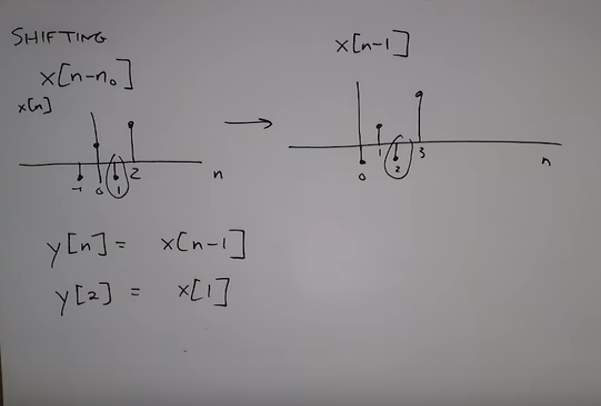 SHIFTING
x[n-n₀]
x[n]
-1 0 1 2 n
x[n-1]
0 1 2 3 n
y[n] = x[n-1]
y[2] = x[1]